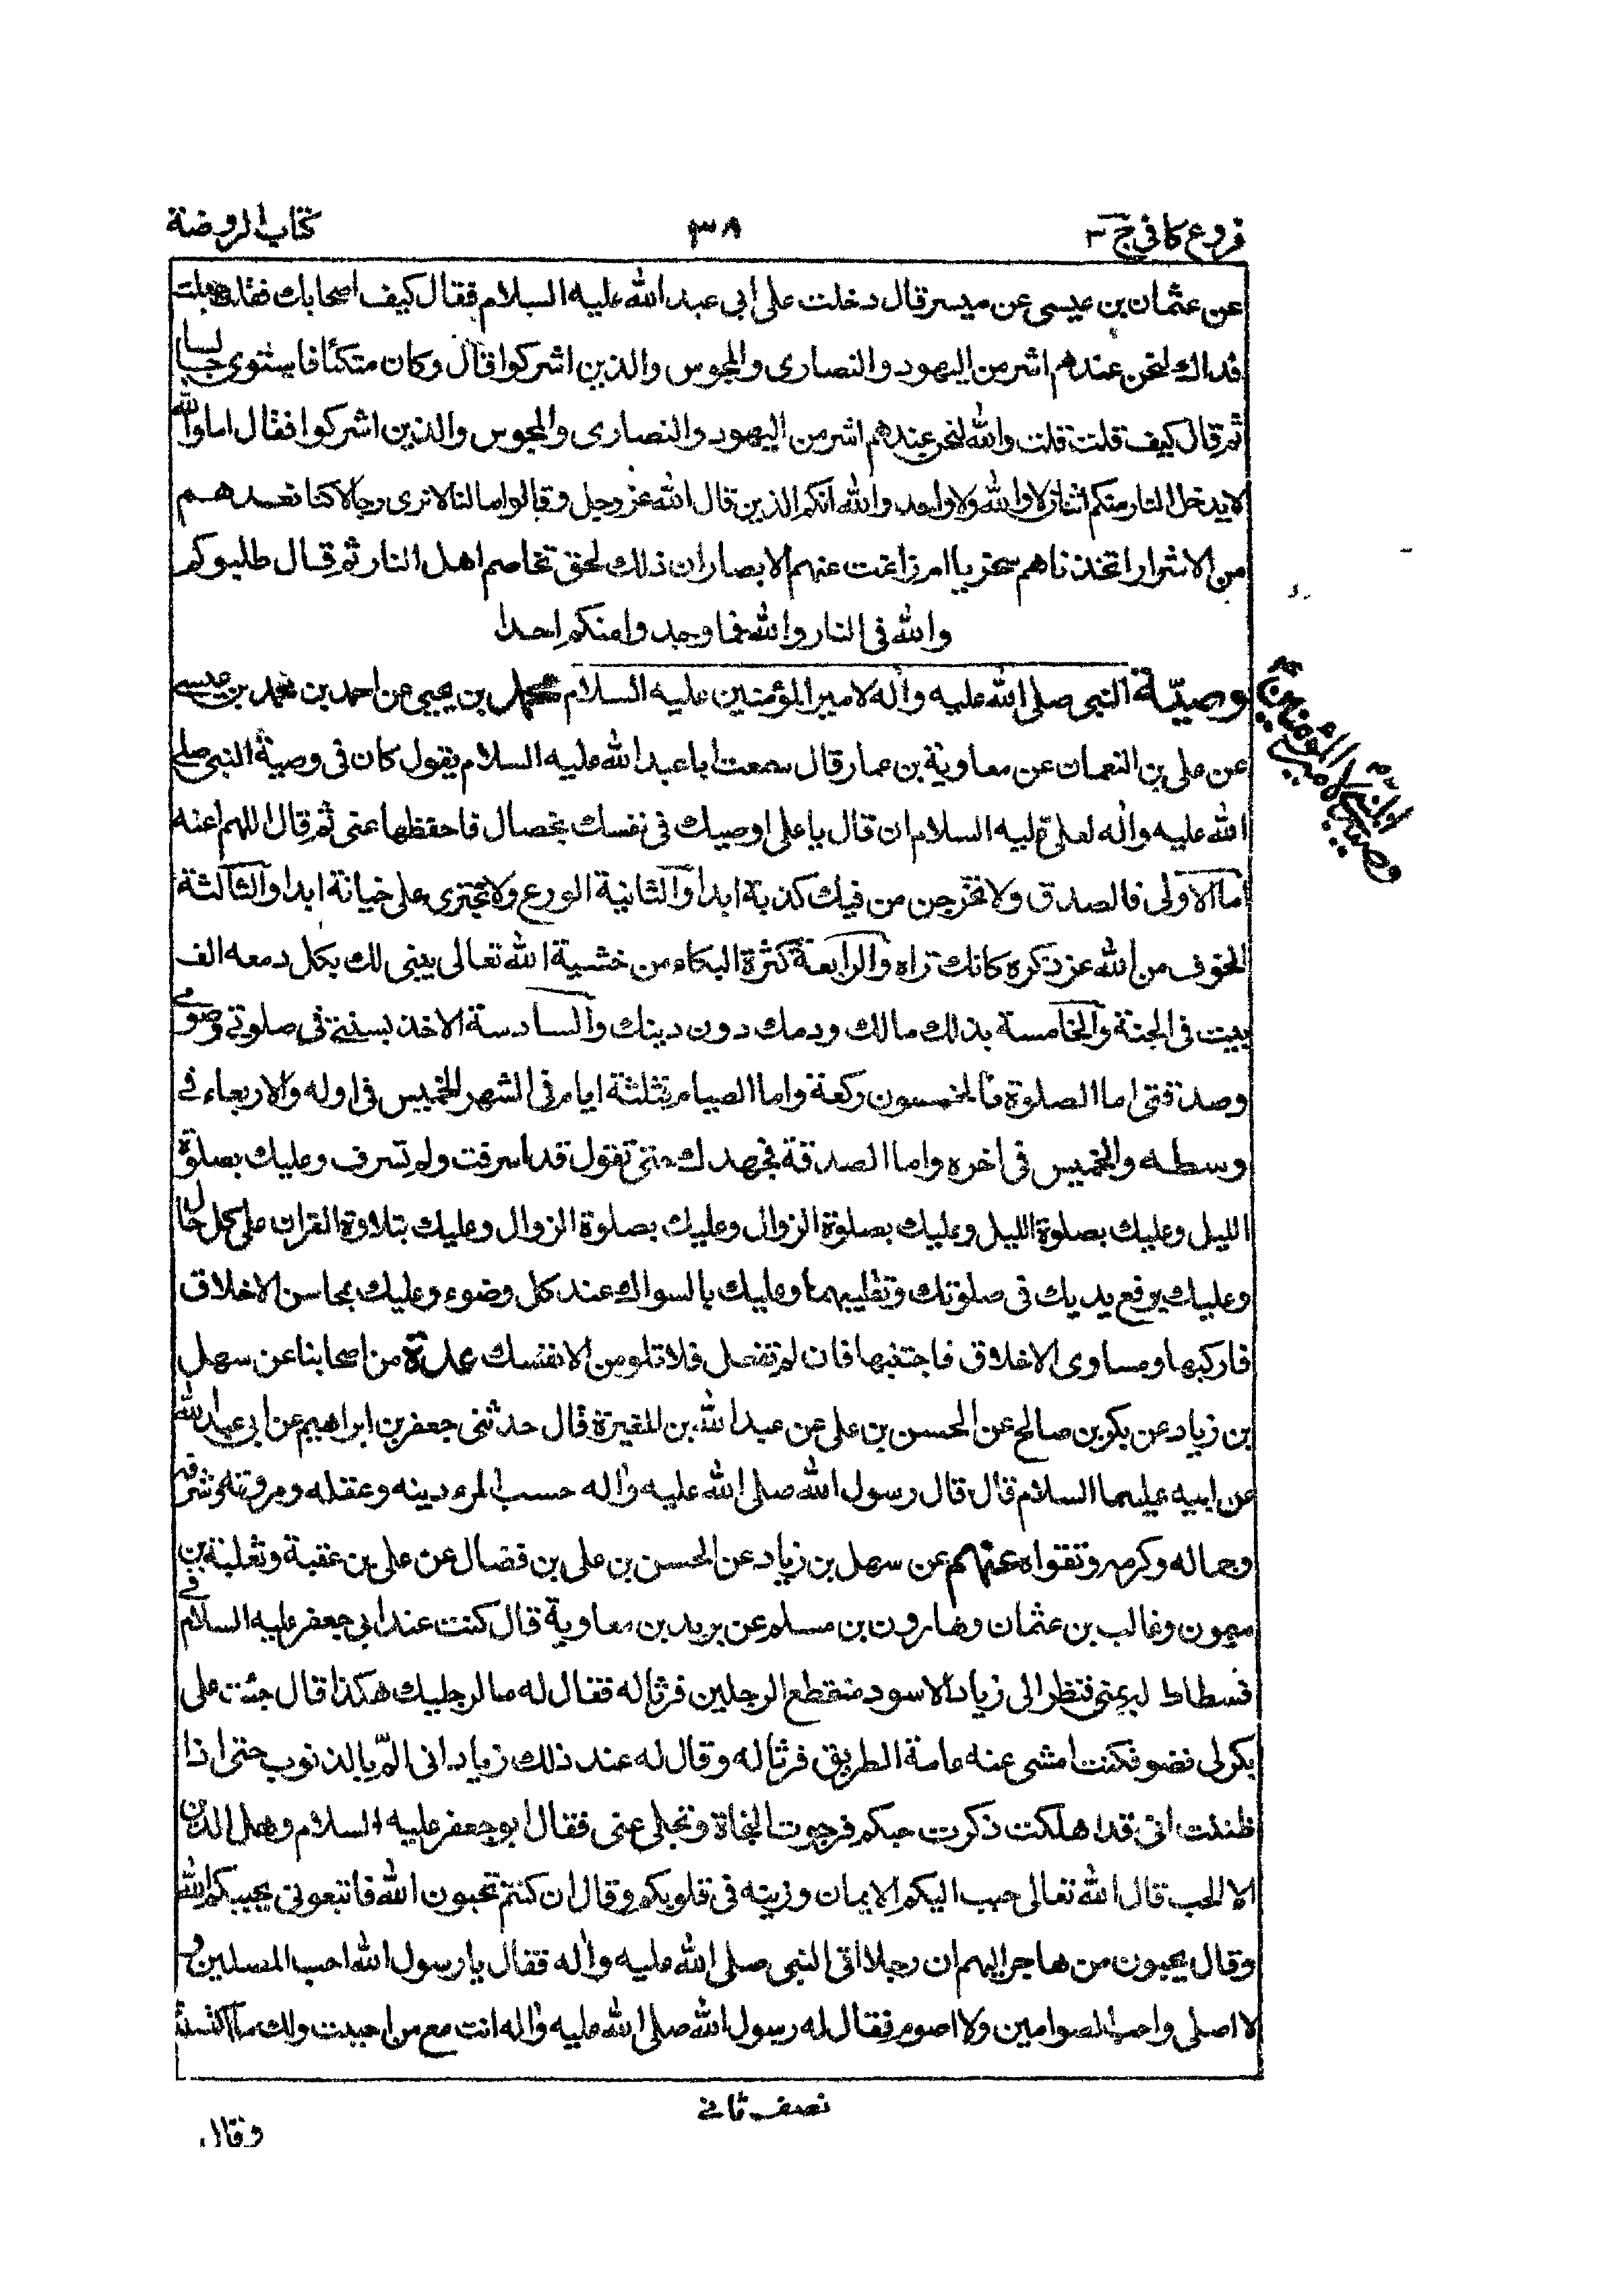 فروع كافى ج ٣
٣٨
كتاب الروضة
عن عثمان بن عيسى عن ميسر قال دخلت على ابى عبد الله عليه السلام فقال كيف اصحابك فقلت جعلت
فداك لنحن عندهم اشر من اليهود والنصارى والمجوس والذين اشركوا قال وكان متكئا فاستوى جالسا
ثم قال كيف قلت قلت والله لنحن عندهم اشر من اليهود والنصارى والمجوس والذين اشركوا فقال اما والله
لا يدخل النار منكم اثنان لا والله ولا واحد والله انكم الذين قال الله عز وجل وقالوا ما لنا لا نرى رجالا كنا نعدهم
من الاشرار اتخذناهم سخريا ام زاغت عنهم الابصار ان ذلك لحق تخاصم اهل النار ثم قال طلبوكم
والله فى النار والله فما وجدوا منكم احدا
وصيّة النبى صلى الله عليه وآله لامير المؤمنين عليه السلام محمد بن يحيى عن احمد بن محمد بن عيسى
عن على بن النعمان عن معاوية بن عمار قال سمعت ابا عبد الله عليه السلام يقول كان فى وصية النبى صلى
الله عليه وآله لعلى عليه السلام ان قال يا على اوصيك فى نفسك بخصال فاحفظها عنى ثم قال اللهم اعنه
اما الاولى فالصدق ولا تخرجن من فيك كذبة ابدا والثانية الورع ولا تجترى على خيانة ابدا والثالثة
الخوف من الله عز ذكره كانك تراه والرابعة كثرة البكاء من خشية الله تعالى يبنى لك بكل دمعه الف
بيت فى الجنة والخامسة بذلك مالك ودمك دون دينك والسادسة الاخذ بسنتى فى صلوتى وصومى
وصدقتى اما الصلوة فالخمسون ركعة واما الصيام فثلثة ايام فى الشهر الخميس فى اوله والاربعاء فى
وسطه والخميس فى اخره واما الصدقة فجهدك حتى تقول قد اسرفت ولم تسرف وعليك بصلوة
الليل وعليك بصلوة الليل وعليك بصلوة الزوال وعليك بصلوة الزوال وعليك بتلاوة القران على كل حال
وعليك برفع يديك فى صلوتك وتقليبهما وعليك بالسواك عند كل وضوء وعليك بمحاسن الاخلاق
فاركبها ومساوى الاخلاق فاجتنبها فان لم تفعل فلا تلومن الا نفسك عدة من اصحابنا عن سهل
بن زياد عن بكر بن صالح عن الحسن بن على عن عبد الله بن المغيرة قال حدثنى جعفر بن ابراهيم عن ابى عبد الله
عن ابيه عليهما السلام قال قال رسول الله صلى الله عليه وآله حسب المرء دينه وعقله ومروته وشرفه
وجماله وكرمه وتقواه عنهم عن سهل بن زياد عن الحسن بن على بن فضال عن على بن عقبة وثعلبة بن
ميمون وغالب بن عثمان وهارون بن مسلم عن بريد بن معاوية قال كنت عند ابى جعفر عليه السلام فى
فسطاط له بمنى فنظر الى زياد الاسود منقطع الرجلين فرثا له فقال له ما لرجليك هكذا قال جئت على
بكر لى نضو فكنت امشى عنه عامة الطريق فرثا له وقال له عند ذلك زياد انى المّ بالذنوب حتى اذا
ظننت انى قد هلكت ذكرت حبكم فرجوت النجاة وتجلى عنى فقال ابو جعفر عليه السلام وهل الدين
الا الحب قال الله تعالى حبب اليكم الايمان وزينه فى قلوبكم وقال ان كنتم تحبون الله فاتبعونى يحببكم الله
وقال يحبون من هاجر اليهم ان رجلا اتى النبى صلى الله عليه وآله فقال يا رسول الله احب المصلين و
لا اصلى واحب الصوامين ولا اصوم فقال له رسول الله صلى الله عليه وآله انت مع من احببت ولك ما اكتسبت
نصف ثانى
وقال